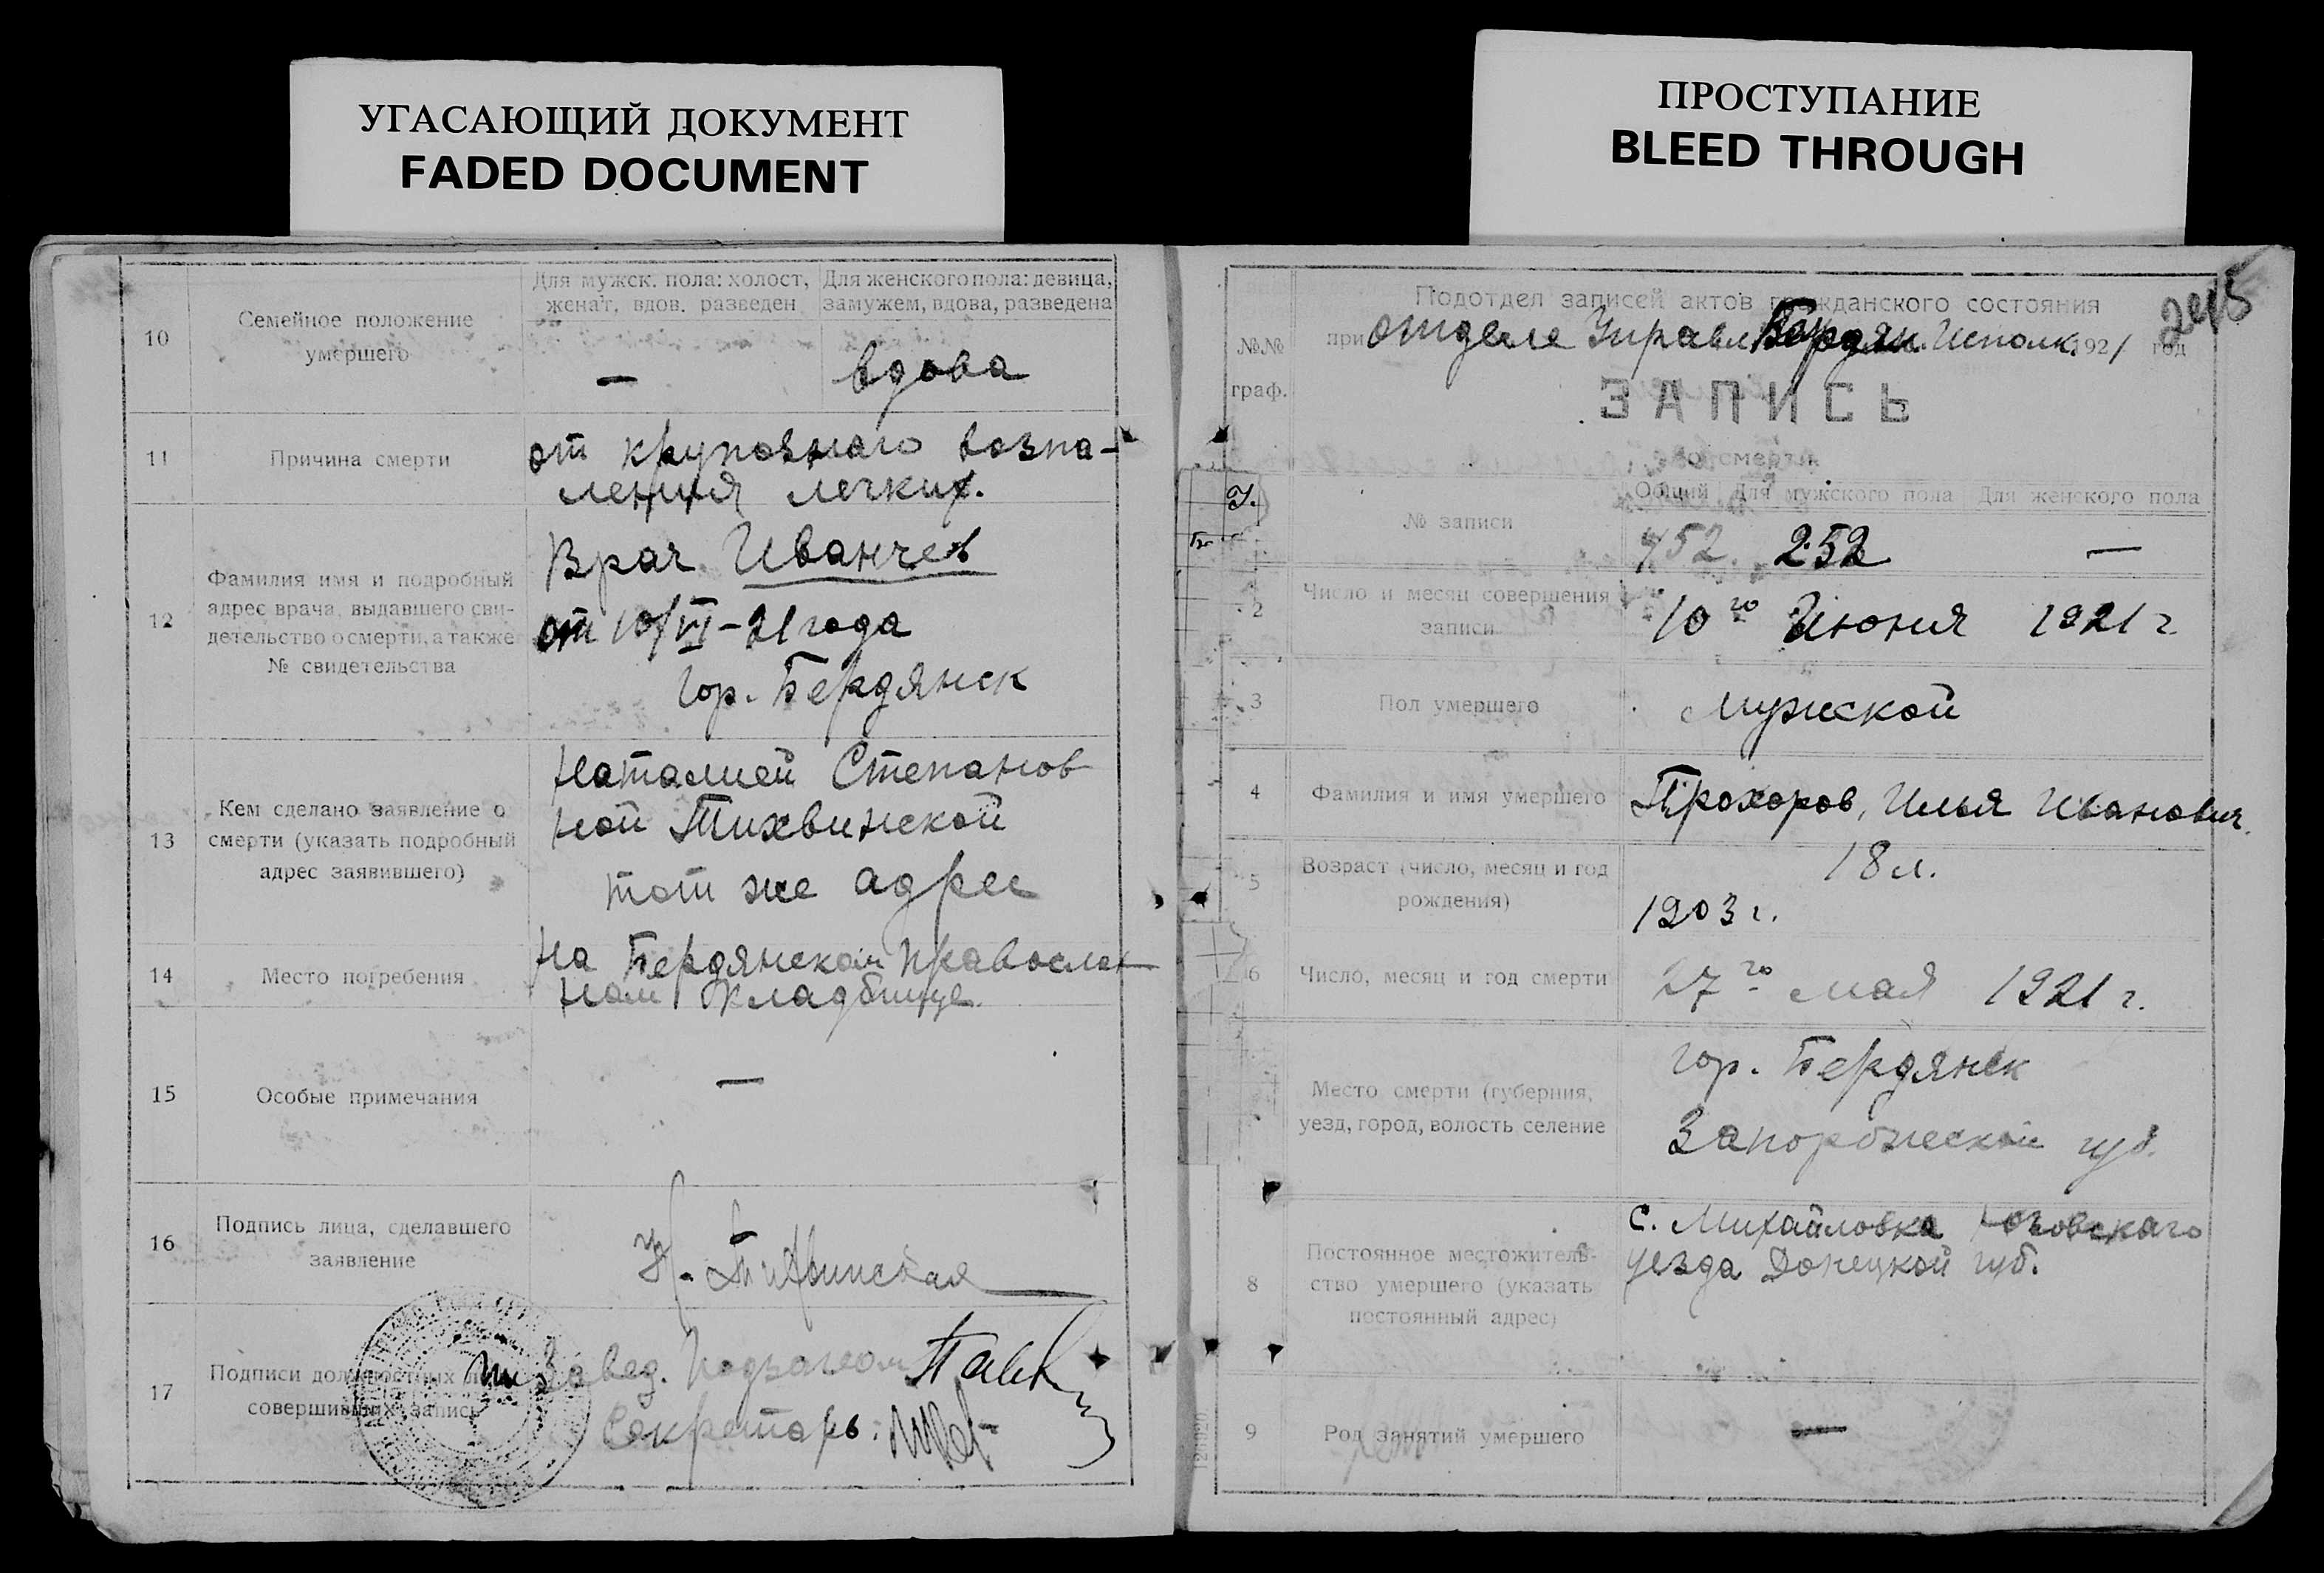 УГАСАЮЩИЙ ДОКУМЕНТ
FADED DOCUMENT
ПРОСТУПАНИЕ
BLEED THROUGH
10
Семейное положение
умершего
Для мужск. пола: холост,
женат, вдов. разведен
—
Для женского пола: девица,
замужем, вдова, разведена
вдова
11
Причина смерти
от крупозного воспа-
ления легких.
12
Фамилия имя и подробный
адрес врача, выдавшего сви-
детельство о смерти, а также
№ свидетельства
Врач Иванчев
от 10/VI-21 года
гор. Бердянск
13
Кем сделано заявление о
смерти (указать подробный
адрес заявившего)
Наталией Степанов
ной Тихвинской
тот же адрес
14
Место погребения
на Бердянском православ
ном кладбище.
15
Особые примечания
—
16
Подпись лица, сделавшего
заявление
Н. Тихвинская
17
Подписи должностных лиц
совершивших запись
Завед.
Секретарь:
№№
граф.
Подотдел записей актов гражданского состояния
при отделе Управл Бердян. Исполк. 1921 год
ЗАПИСЬ
о смерти
№ записи
Общий
Для мужского пола
Для женского пола
452. 252 —
2
Число и месяц совершения
записи
10го Июня 1921 г.
3
Пол умершего
мужской
4
Фамилия и имя умершего
Прохоров, Илья Иванович.
5
Возраст (число, месяц и год
рождения)
18 л.
1903 г.
6
Число, месяц и год смерти
27го мая 1921 г.
Место смерти (губерния,
уезд, город, волость селение
гор. Бердянск
Запорожской губ.
8
Постоянное местожитель-
ство умершего (указать
постоянный адрес)
с. Михайловка Юзовского
уезда Донецкой губ.
9
Род занятий умершего
—